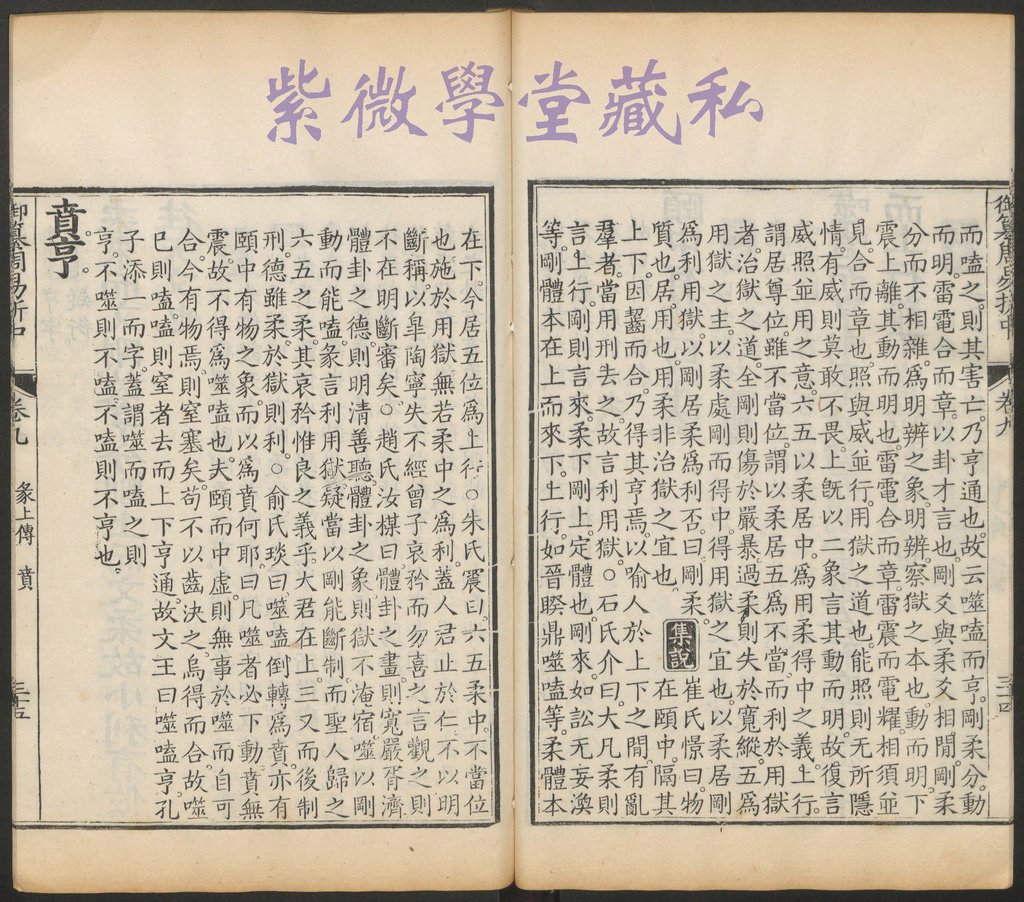 紫微學堂藏私
御纂周易折中 卷九 三十四
而嗑之。則其害亡。乃亨通也。故云噬嗑而亨。剛柔分。動
而明。雷電合而章。以卦才言也。剛爻與柔爻相閒。剛柔
分而不相雜。為明辨之象。明辨。察獄之本也。動而明。下
震上離。其動而明也。雷電合而章。雷震而電耀。相須並
見。合而章也。照與威並行。用獄之道也。能照則无所隱
情。有威則莫敢不畏。上旣以二象言其動而明。故復言
威照並用之意。六五以柔居中。為用柔得中之義。上行。
謂居尊位。雖不當位。謂以柔居五為不當。而利於用獄
者。治獄之道。全剛則傷於嚴暴。過柔則失於寬縱。五為
用獄之主。以柔處剛而得中。得用獄之宜也。以柔居剛
為利用獄。以剛居柔為利否。曰。剛柔。
質也。居。用也。用柔非治獄之宜也。
集說
崔氏憬曰。物
在頤中。隔其
上下。因齧而合。乃得其亨焉。以喻人於上下之閒。有亂
羣者。當用刑去之。故言利用獄。○石氏介曰。大凡柔則
言上行。剛則言來。柔下剛上。定體也。剛來。如訟无妄渙
等。剛體本在上而來下。上行。如晉睽鼎噬嗑等。柔體本
在下。今居五位為上行。○朱氏震曰。六五柔中。不當位
也。施於用獄。無若柔中之為利。蓋人君止於仁。不以明
斷稱。以皐陶寧失不經。曾子哀矜而勿喜之言觀之。則
不在明斷審矣。○趙氏汝楳曰。體卦之畫。則寬嚴胥濟。
體卦之德。則明清善聽。體卦之象。則獄不淹宿。噬以剛
動而能嗑。彖言利用獄。疑當以剛能斷制。而聖人歸之
六五之柔。其哀矜惟良之義乎。大君在上。三又而後制
刑。德雖柔。於獄則利。○俞氏琰曰。噬嗑倒轉為賁。亦有
頤中有物之象。而以為賁何耶。曰。凡噬者必下動。賁無
震。故不得為噬嗑也。夫頤而中虛。則無事於噬而自可
合。今有物焉。則窒塞矣。苟不以齒決之。烏得而合。故噬
已則嗑。嗑則窒者去而上下亨通。故文王曰噬嗑亨。孔
子添一而字。蓋謂噬而嗑之則
亨。不噬則不嗑。不嗑則不亨也。
賁亨。
御纂周易折中 卷九 彖上傳 賁 三十五